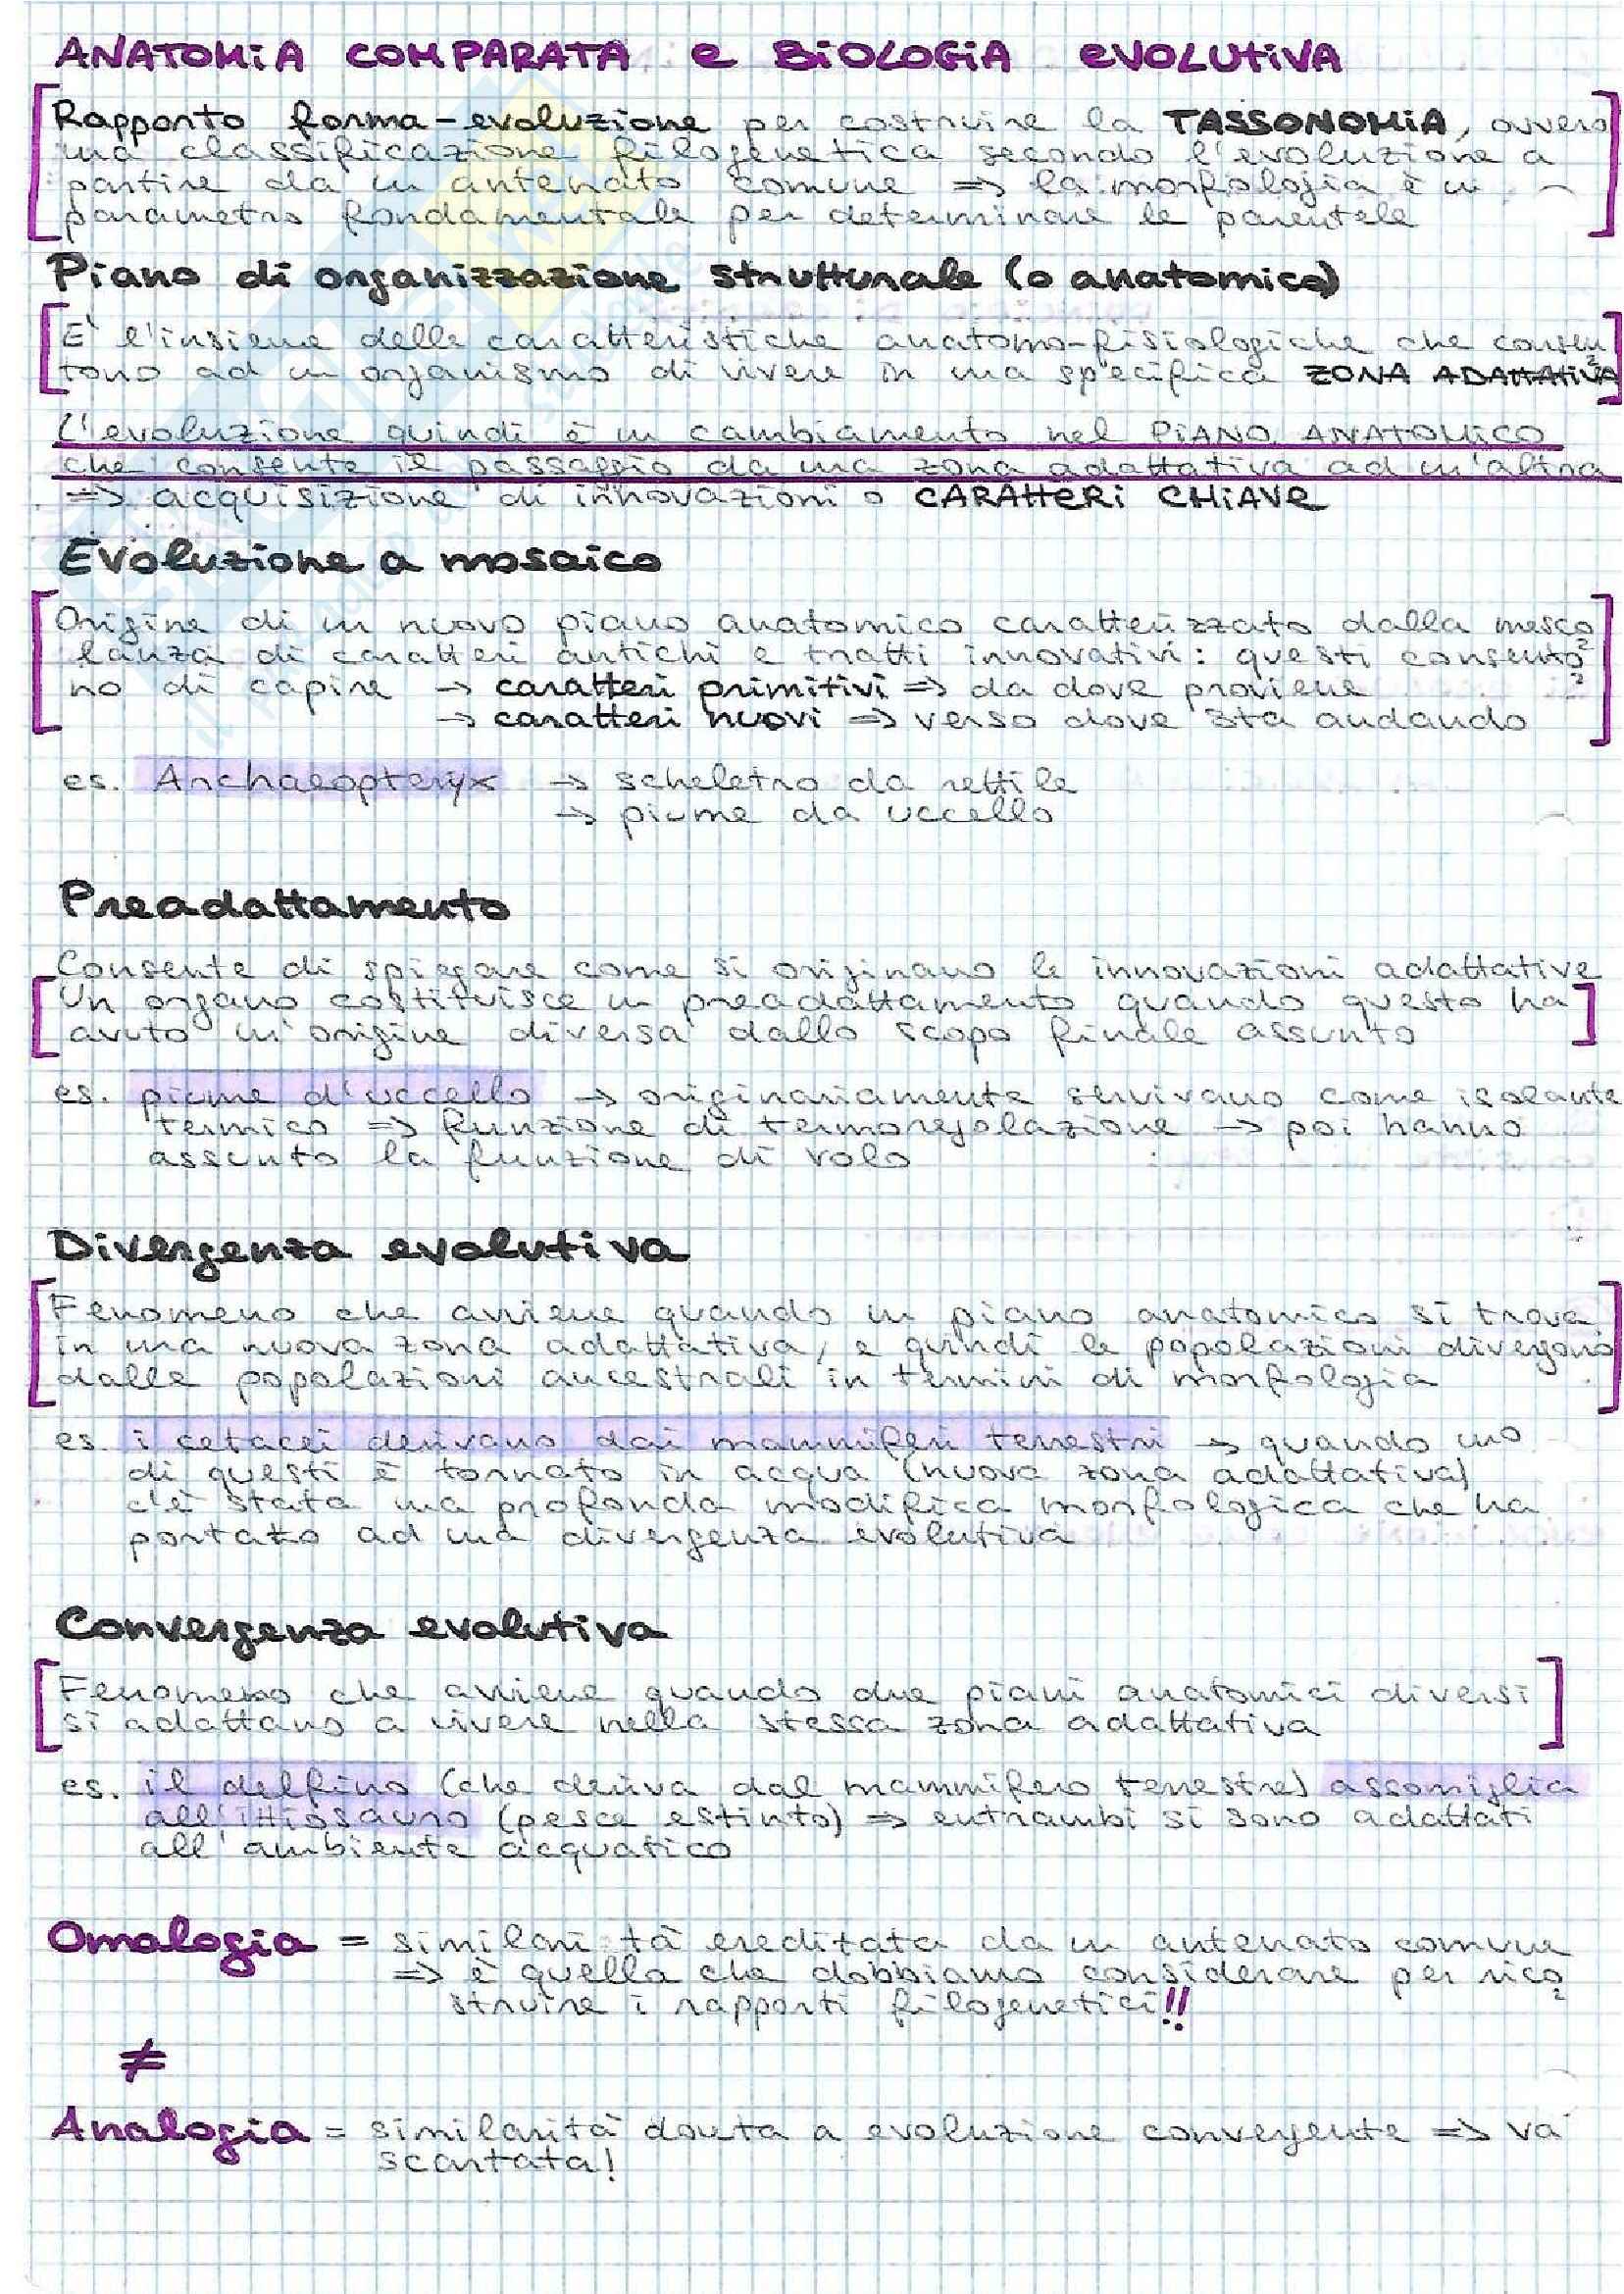 ANATOMIA COMPARATA e BIOLOGIA EVOLUTIVA
Rapporto forma-evoluzione per costruire la TASSONOMIA, ovvero
una classificazione filogenetica secondo l'evoluzione a
partire da un antenato comune => la morfologia è un
parametro fondamentale per determinare le parentele
Piano di organizzazione strutturale (o anatomico)
E' l'insieme delle caratteristiche anatomo-fisiologiche che consen
tono ad un organismo di vivere in una specifica ZONA ADATTATIVA
L'evoluzione quindi è un cambiamento nel PIANO ANATOMICO
che consente il passaggio da una zona adattativa ad un'altra
=> acquisizione di innovazioni o CARATTERI CHIAVE
Evoluzione a mosaico
Origine di un nuovo piano anatomico caratterizzato dalla mesco
lanza di caratteri antichi e tratti innovativi: questi consento
no di capire → caratteri primitivi => da dove proviene
→ caratteri nuovi => verso dove sta andando
es. Archaeopteryx → scheletro da rettile
→ piume da uccello
Preadattamento
Consente di spiegare come si originano le innovazioni adattative
Un organo costituisce un preadattamento quando questo ha
avuto un'origine diversa dallo scopo finale assunto
es. piume d'uccello → originariamente servivano come isolante
termico => funzione di termoregolazione → poi hanno
assunto la funzione di volo
Divergenza evolutiva
Fenomeno che avviene quando un piano anatomico si trova
in una nuova zona adattativa, e quindi le popolazioni divergono
dalle popolazioni ancestrali in termini di morfologia
es. i cetacei derivano dai mammiferi terrestri → quando uno
di questi è tornato in acqua (nuova zona adattativa)
c'è stata una profonda modifica morfologica che ha
portato ad una divergenza evolutiva
Convergenza evolutiva
Fenomeno che avviene quando due piani anatomici diversi
si adattano a vivere nella stessa zona adattativa
es. il delfino (che deriva dal mammifero terrestre) assomiglia
all'ittiosauro (pesce estinto) => entrambi si sono adattati
all'ambiente acquatico
Omologia = similarità ereditata da un antenato comune
=> è quella che dobbiamo considerare per rico
struire i rapporti filogenetici!!
≠
Analogia = similarità dovuta a evoluzione convergente => va
scartata!